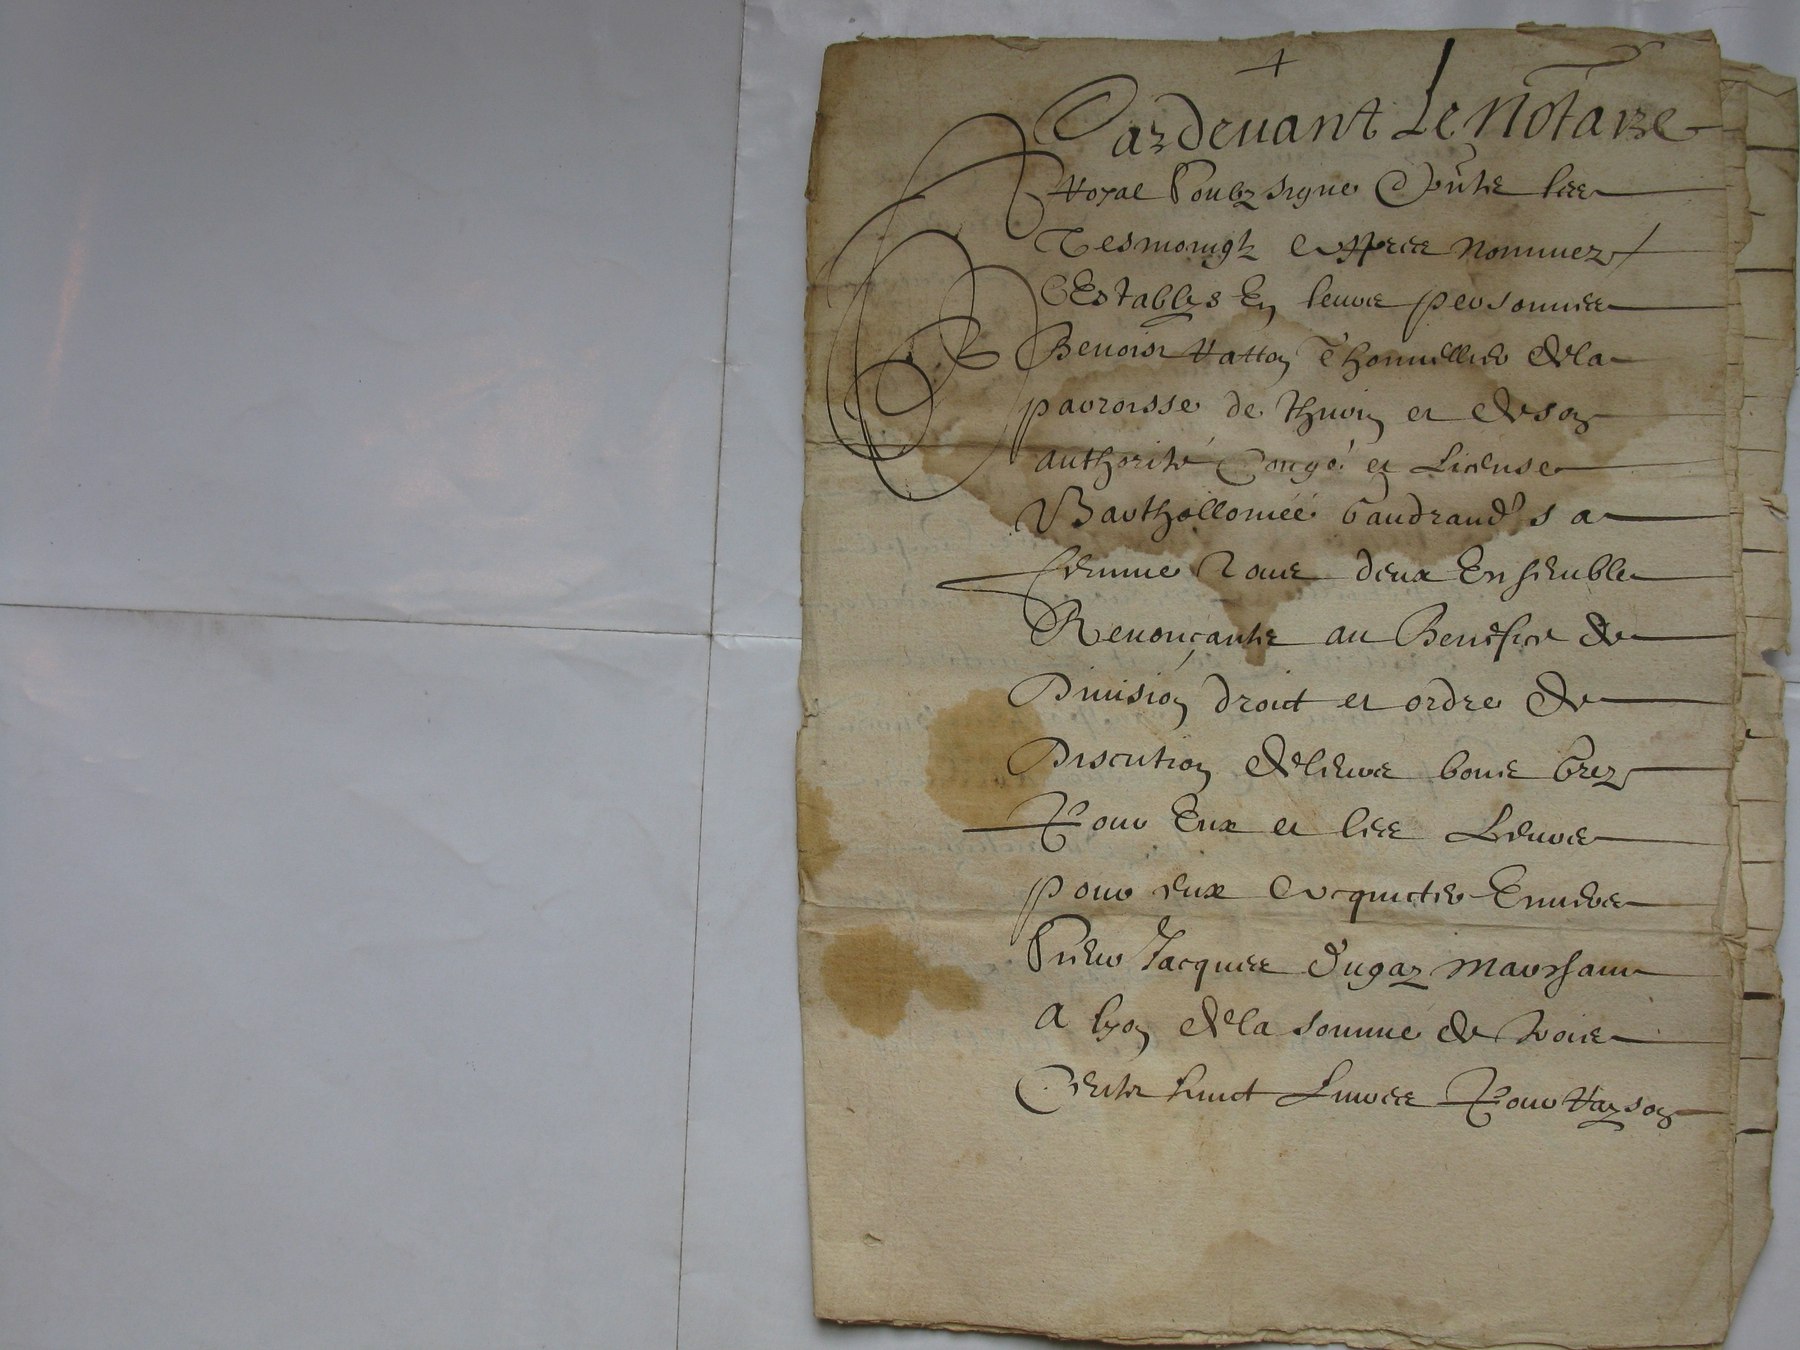 Pardevant Le Notaire
Royal soubzsigné Et pnts les
Tesmoingtz appres nommez
Establys En leurs personnes
Benoist Ratton Thonnellier de la
parroisse de et de son
authorité Congé et License
Barthollomée Gaudrand sa
femme Tous deux Ensemble
Renonçants au Benefice de
Division droit et ordre de
Discution de leurs bons grez
Pour Eux et les Leurs
pour eux acquicter Envers
sieur Jacques Dugaz marchant
A lyon de la somme de trois
Cents huict Livres Pour Rayson